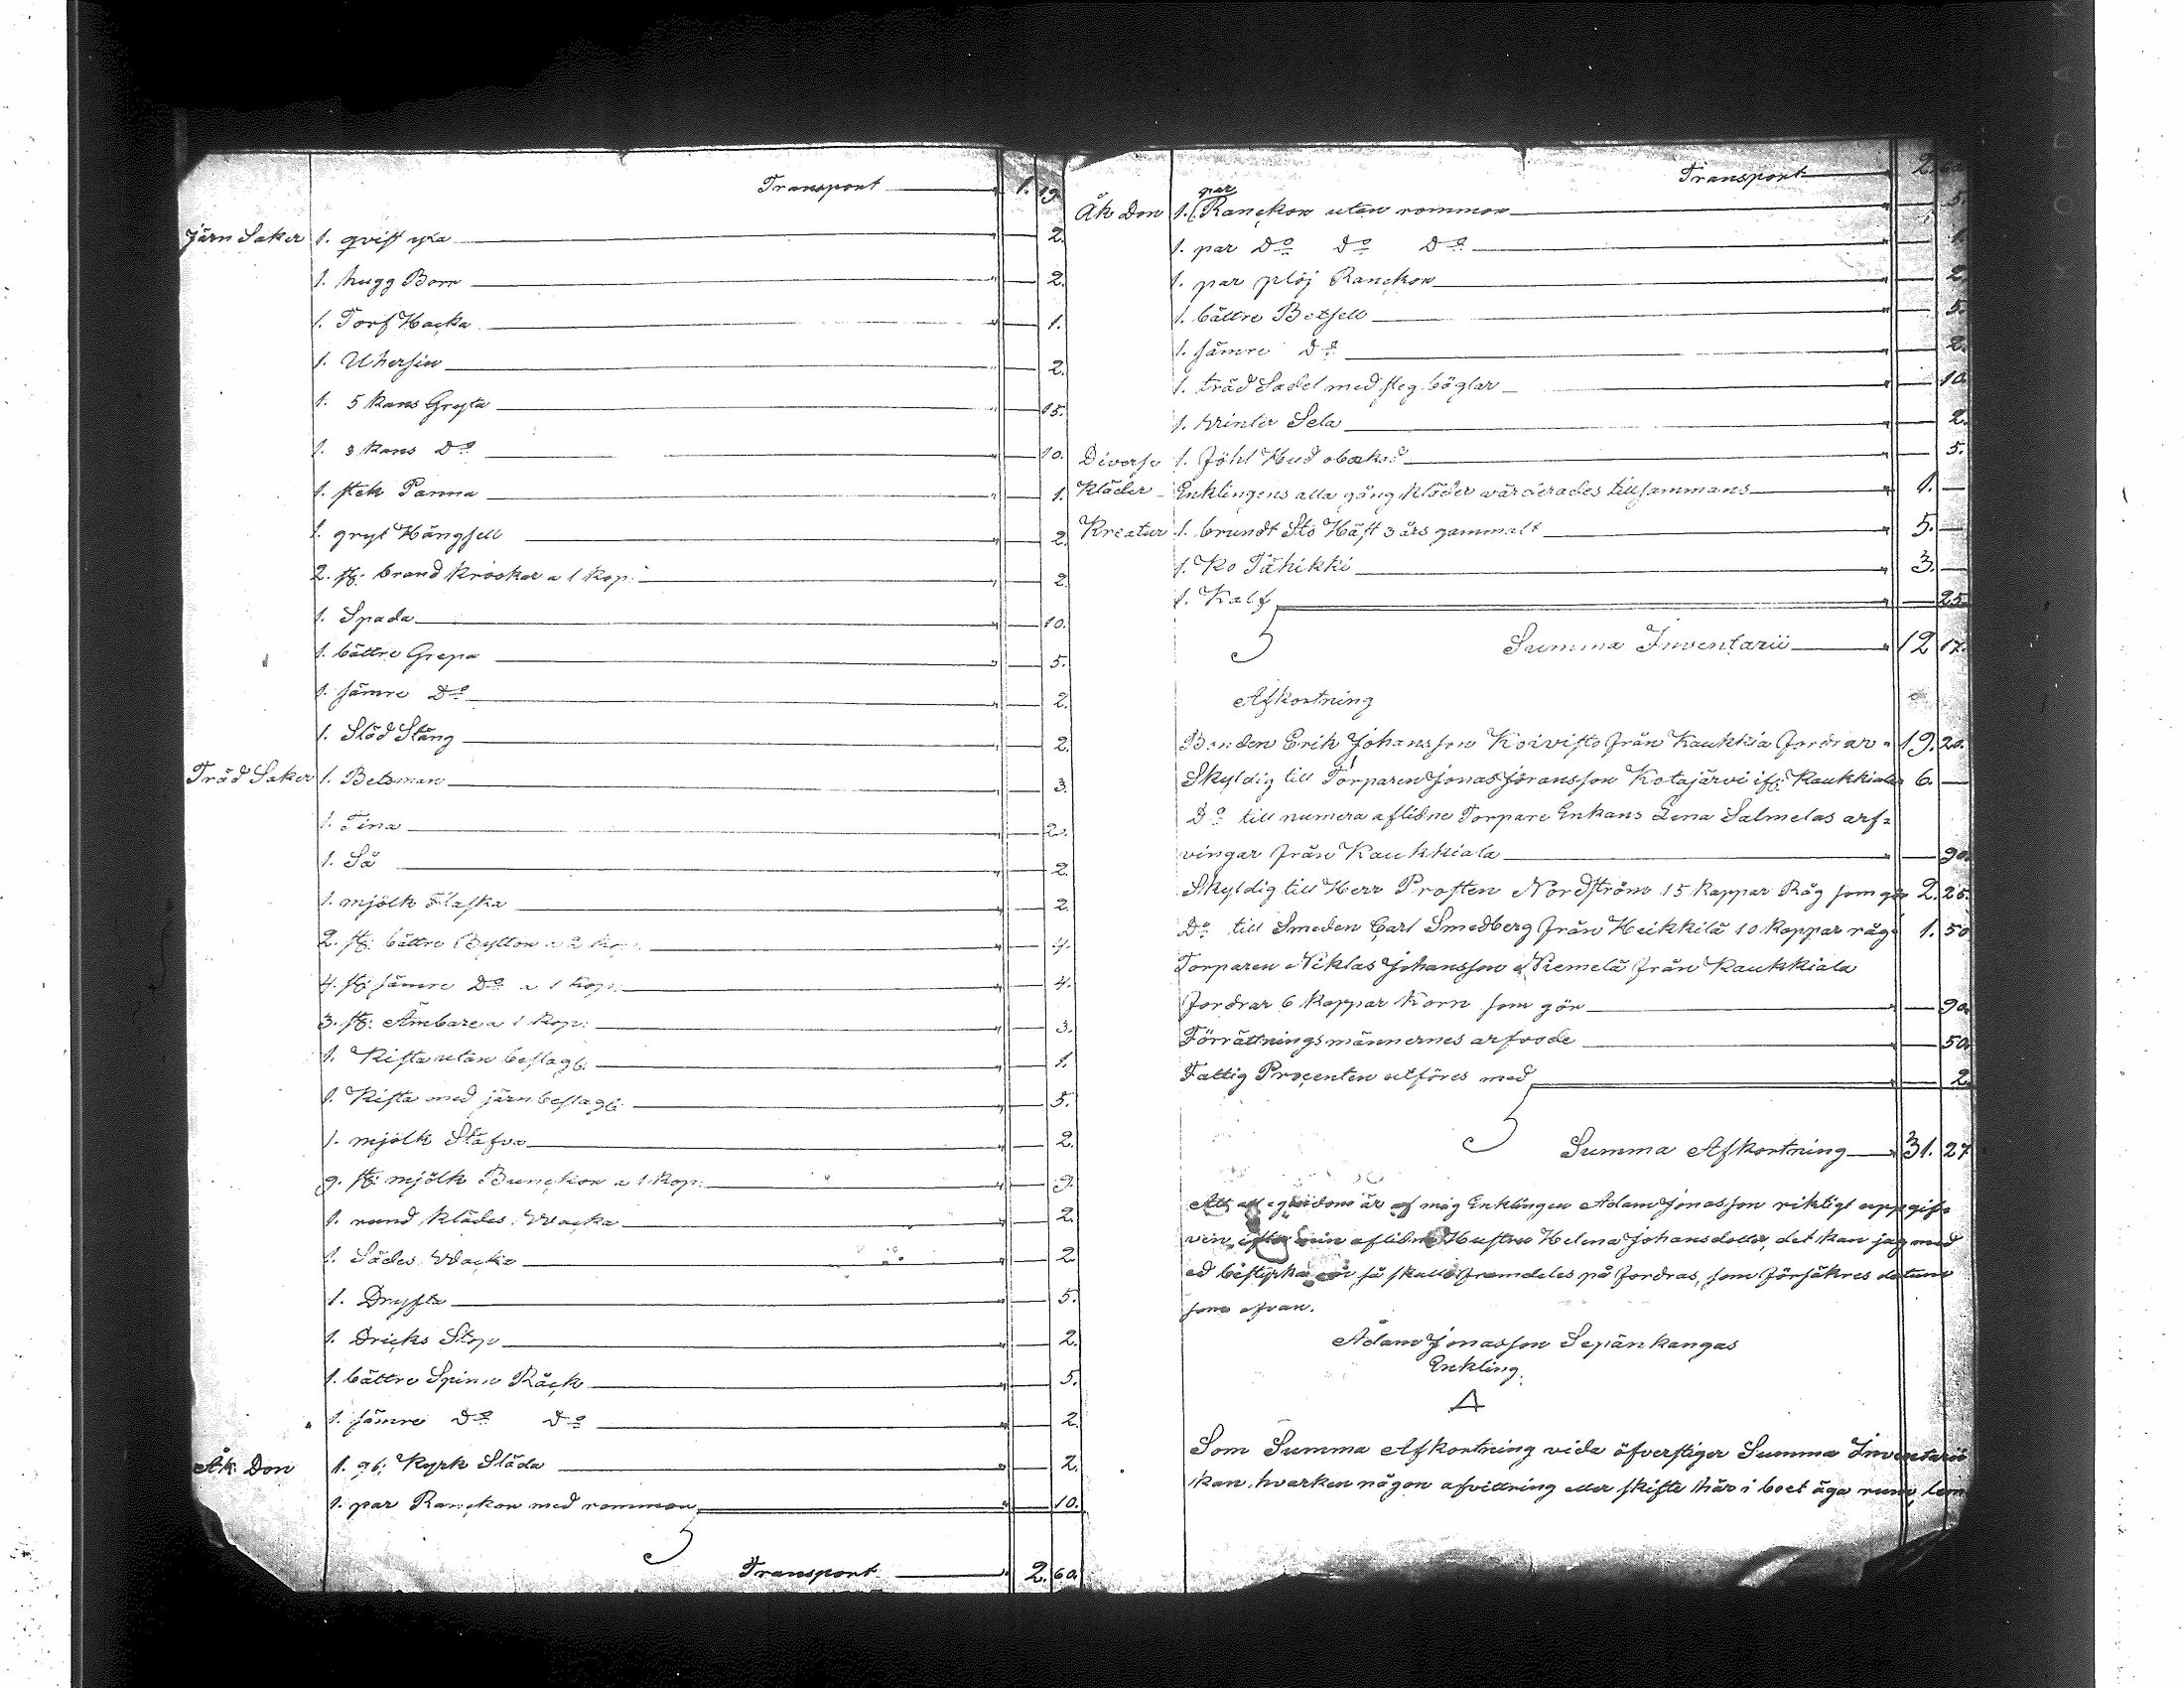 Transport 1. 19.
Järn Saker 1. qvist yxa 2.
1. hugg Borr 2.
1. Torf Hacka 1.
1. Uhersin 2.
1. 5 kans Gryta 15.
1. 3 kans Do 10.
1. stek Panna 1.
1. gryt Hängsell 2.
2. st: brand krockar a 1 kop: 2.
1. Spada 10.
1. bättre Grepa 5.
1. sämre Do 2.
1. Slöd Stång 2.
Träd Saker 1. Betsman 3.
1. Tina 2.
1. Så 2.
1. mjölk Flaska 2.
2. st: bättre Byttor a 2 kop: 4.
4. st: sämre Do a 1 kop: 4.
3. st: Ämbare a 1 kop: 3.
1. Kista utan beslag: 1.
1. Kista med järn beslag: 5.
1. mjölk Stäfva 2.
9. st: mjölk Bunckor a 1 kop: 9.
1. rund klädes Wacka 2.
1. Sädes Wacka 2
1. Dryfta 5.
1. Dricks Stop 2.
1. bättre Spinn Råck 5.
1. sämre Do Do 2.
Åk Don 1. gb: Kyrk Släda 2.
1. par Ranckor med rommor 10.
Transport 2. 60.
Transport 2. 60
Åk Don 1. par Ranckor utan rommor 5.
1. par Do Do Do 1.
1. par plöj Ranckor 2.
1. bättre Betsell 5.
1. sämre Do 2.
1. träd Sadel med steg böglar 10.
1. Winter Sela 2.
Diverse 1. Föhl Hud obarkad 5.
Kläder Enklingens alla gång kläder värderades tillsammans 1. —
Kreatur 1. brundt Sto Häst 3 års gammalt 5. —
1. Ko Tähikki 3. —
1. Kalf 25.
Summa Inventarii 12 17.
Afkortning
Bonden Erik Johansson Koivisto från Kaukkia fordrar 19. 20.
Skyldig till Torparen Jonas Jöransson Kotajärvi ifr: Kaukkiala 6. —
Do till numera aflidne Torpare Enkans Lena Salmelas arf=
vingar från Kaukkiala 90
Skyldig till Herr Prosten Nordström 15 kappar Råg som gör 2. 25.
Do till Smeden Carl Smedberg från Heikkilä 10 kappar råg 1. 50
Torparen Niklas Johansson Niemelä från Kaukkiala
fordrar 6 kappar Korn som gör 90
Förrättningsmännernes arfvode 50
Fattig Procenten utföres med 2
Summa Afkortning 31. 27
Att all egendom är af mig Enklingen Adam Jonasson riktigt uppgif=
ven efter min aflidna Hustru Helena Johansdotter, det kan jag med
ed bestyrka om så skulle framdeles på fordras, som försäkres datum
som ofvan.
Adam Jonasson Sepänkangas
Enkling.
A
Som Summa Afkortning vida öfverstiger Summa Inventarii
kan hvarken någon afvittring eller skifte här i boet äga rum,